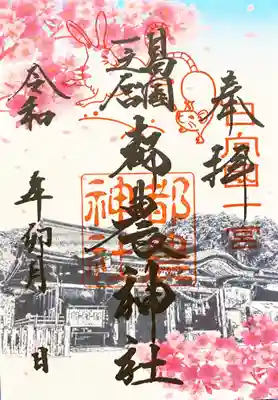 奉拝
日向国一宮
日向国
一之宮
都農神社
都農神社
令和 年 卯月 日